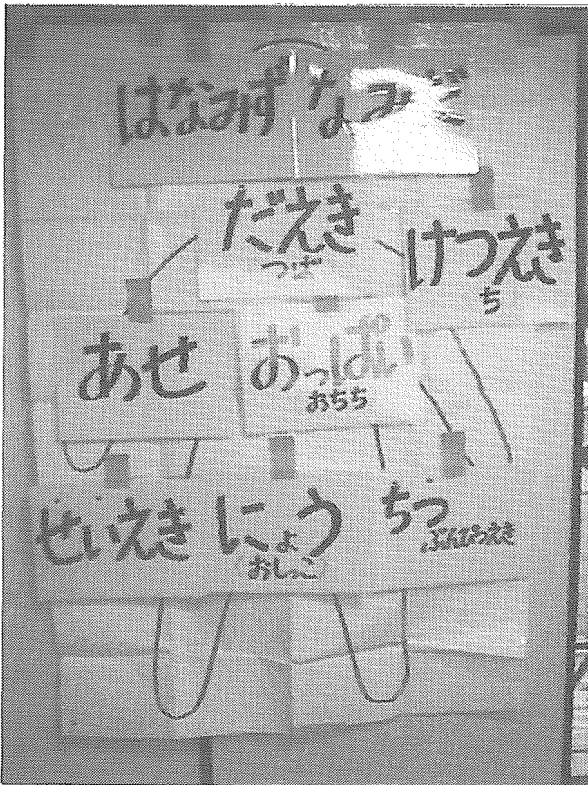 はなみず なみだ
だえき
つば
けつえき
ち
あせ
おっぱい
おちち
せいえき
にょう
おしっこ
ちつ
ぶんぴつえき